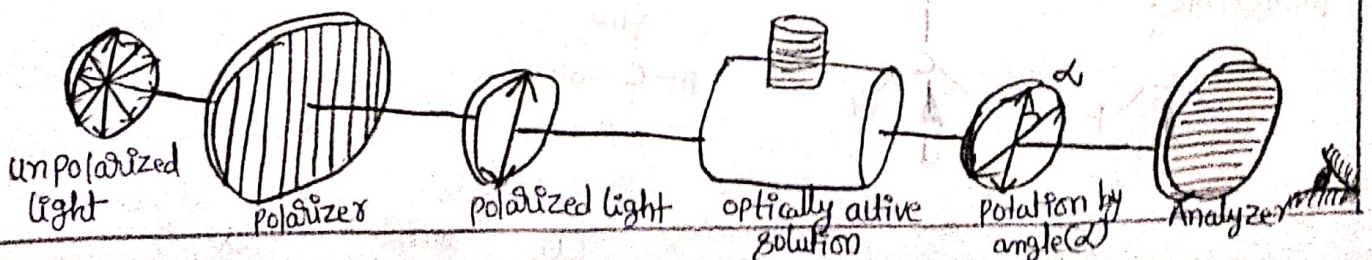 α
unpolarized
light
polarizer
polarized light
optically active
solution
rotation by
angle(α)
Analyzer